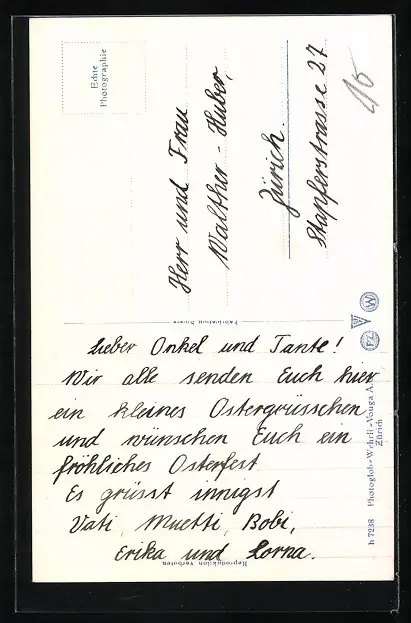 Echte
Photographie
Herr und Frau
Walther - Huber,
Zürich.
Stapferstrasse 27
Lieber Onkel und Tante!
Wir alle senden Euch hier
ein kleines Ostergrüsschen
und wünschen Euch ein
fröhliches Osterfest
Es grüsst innigst
Vati, Muetti, Bobi,
Erika und Lorna.
h 7238 Photoglob-Wehrli-Vouga A.G.
Zürich
Reproduktion verboten